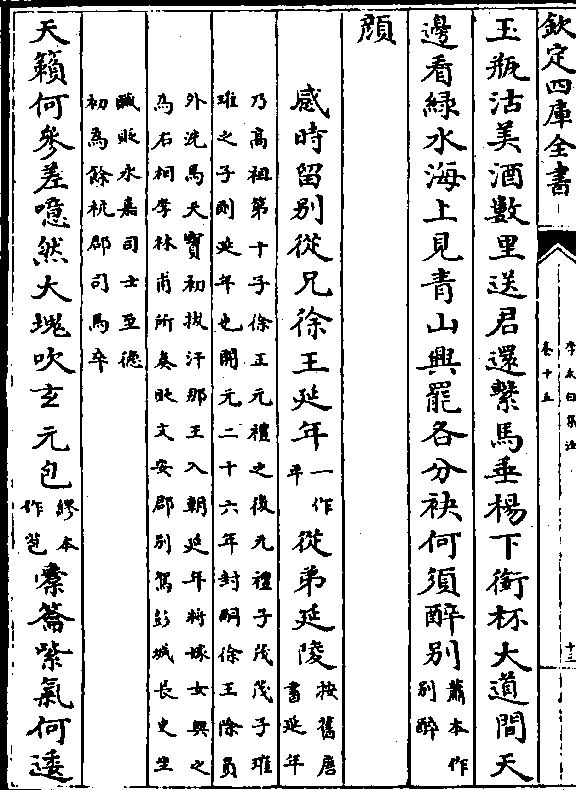 欽定四庫全書
李太白集注
卷十五
十三
玉瓶沽美酒數里送君還繫馬垂楊下銜杯大道間天
邊看綠水海上見青山興罷各分袂何須醉別蕭本作別醉
顔
感時留別從兄徐王延年一作平從弟延陵按舊唐書延年
乃高祖第十子徐王元禮之後元禮子茂茂子璀
璀之子則延年也開元二十六年封嗣徐王除員
外洗馬天寶初拔汗那王入朝延年將嫁女與之
為右相李林甫所奏貶文安郡別駕彭城長史坐
贓貶永嘉司士至德
初為餘杭郡司馬卒
天籟何參差噫然大塊吹玄元包繆本作苞橐籥紫氣何逶